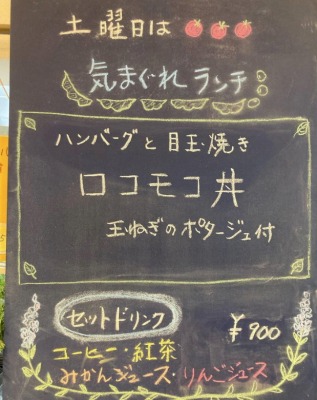 土曜日は
気まぐれランチ
ハンバーグと目玉焼き
ロコモコ丼
玉ねぎのポタージュ付
セットドリンク ¥900
コーヒー・紅茶
みかんジュース・りんごジュース